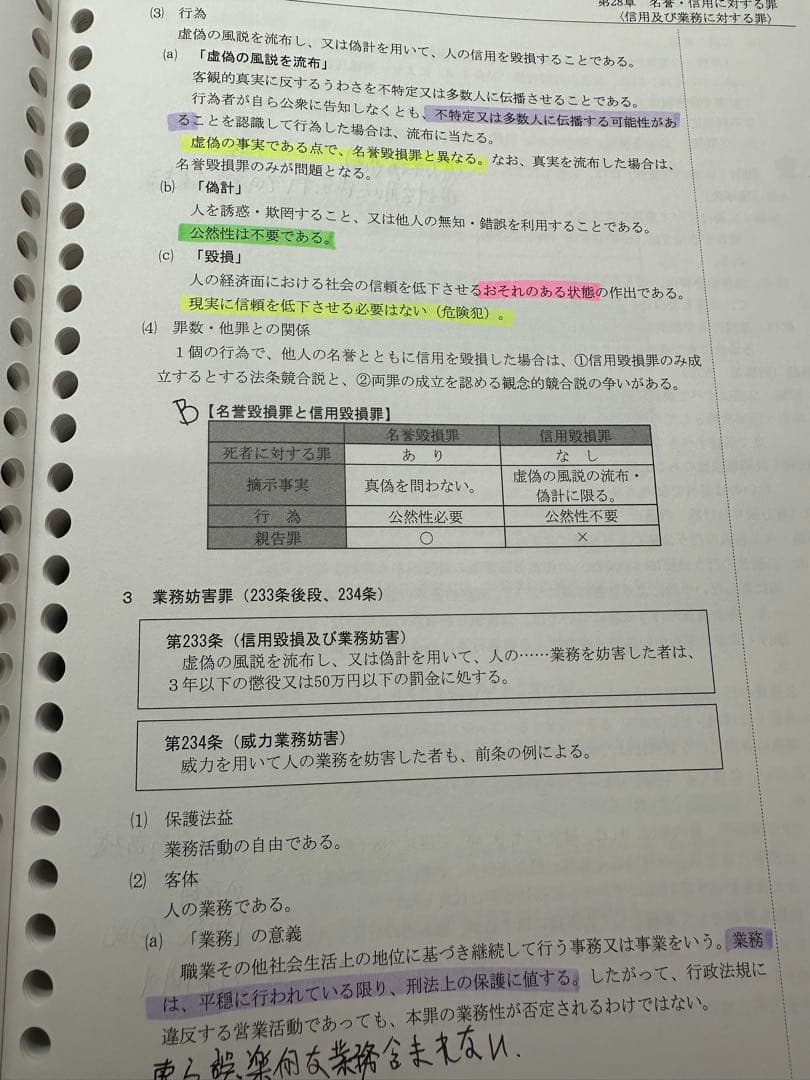 第28章 名誉・信用に対する罪
〈信用及び業務に対する罪〉
(3) 行為
虚偽の風説を流布し、又は偽計を用いて、人の信用を毀損することである。
(a) 「虚偽の風説を流布」
客観的真実に反するうわさを不特定又は多数人に伝播させることである。
行為者が自ら公衆に告知しなくとも、不特定又は多数人に伝播する可能性があ
ることを認識して行為した場合は、流布に当たる。
虚偽の事実である点で、名誉毀損罪と異なる。なお、真実を流布した場合は、
名誉毀損罪のみが問題となる。
(b) 「偽計」
人を誘惑・欺罔すること、又は他人の無知・錯誤を利用することである。
公然性は不要である。
(c) 「毀損」
人の経済面における社会の信頼を低下させるおそれのある状態の作出である。
現実に信頼を低下させる必要はない（危険犯）。
(4) 罪数・他罪との関係
１個の行為で、他人の名誉とともに信用を毀損した場合は、①信用毀損罪のみ成
立するとする法条競合説と、②両罪の成立を認める観念的競合説の争いがある。
B【名誉毀損罪と信用毀損罪】
名誉毀損罪 信用毀損罪
死者に対する罪 あり なし
摘示事実 真偽を問わない。 虚偽の風説の流布・
偽計に限る。
行為 公然性必要 公然性不要
親告罪 ○ ×
3 業務妨害罪（233条後段、234条）
第233条（信用毀損及び業務妨害）
虚偽の風説を流布し、又は偽計を用いて、人の……業務を妨害した者は、
３年以下の懲役又は50万円以下の罰金に処する。
第234条（威力業務妨害）
威力を用いて人の業務を妨害した者も、前条の例による。
(1) 保護法益
業務活動の自由である。
(2) 客体
人の業務である。
(a) 「業務」の意義
職業その他社会生活上の地位に基づき継続して行う事務又は事業をいう。業務
は、平穏に行われている限り、刑法上の保護に値する。したがって、行政法規に
違反する営業活動であっても、本罪の業務性が否定されるわけではない。
専ら娯楽的な業務含まれない.